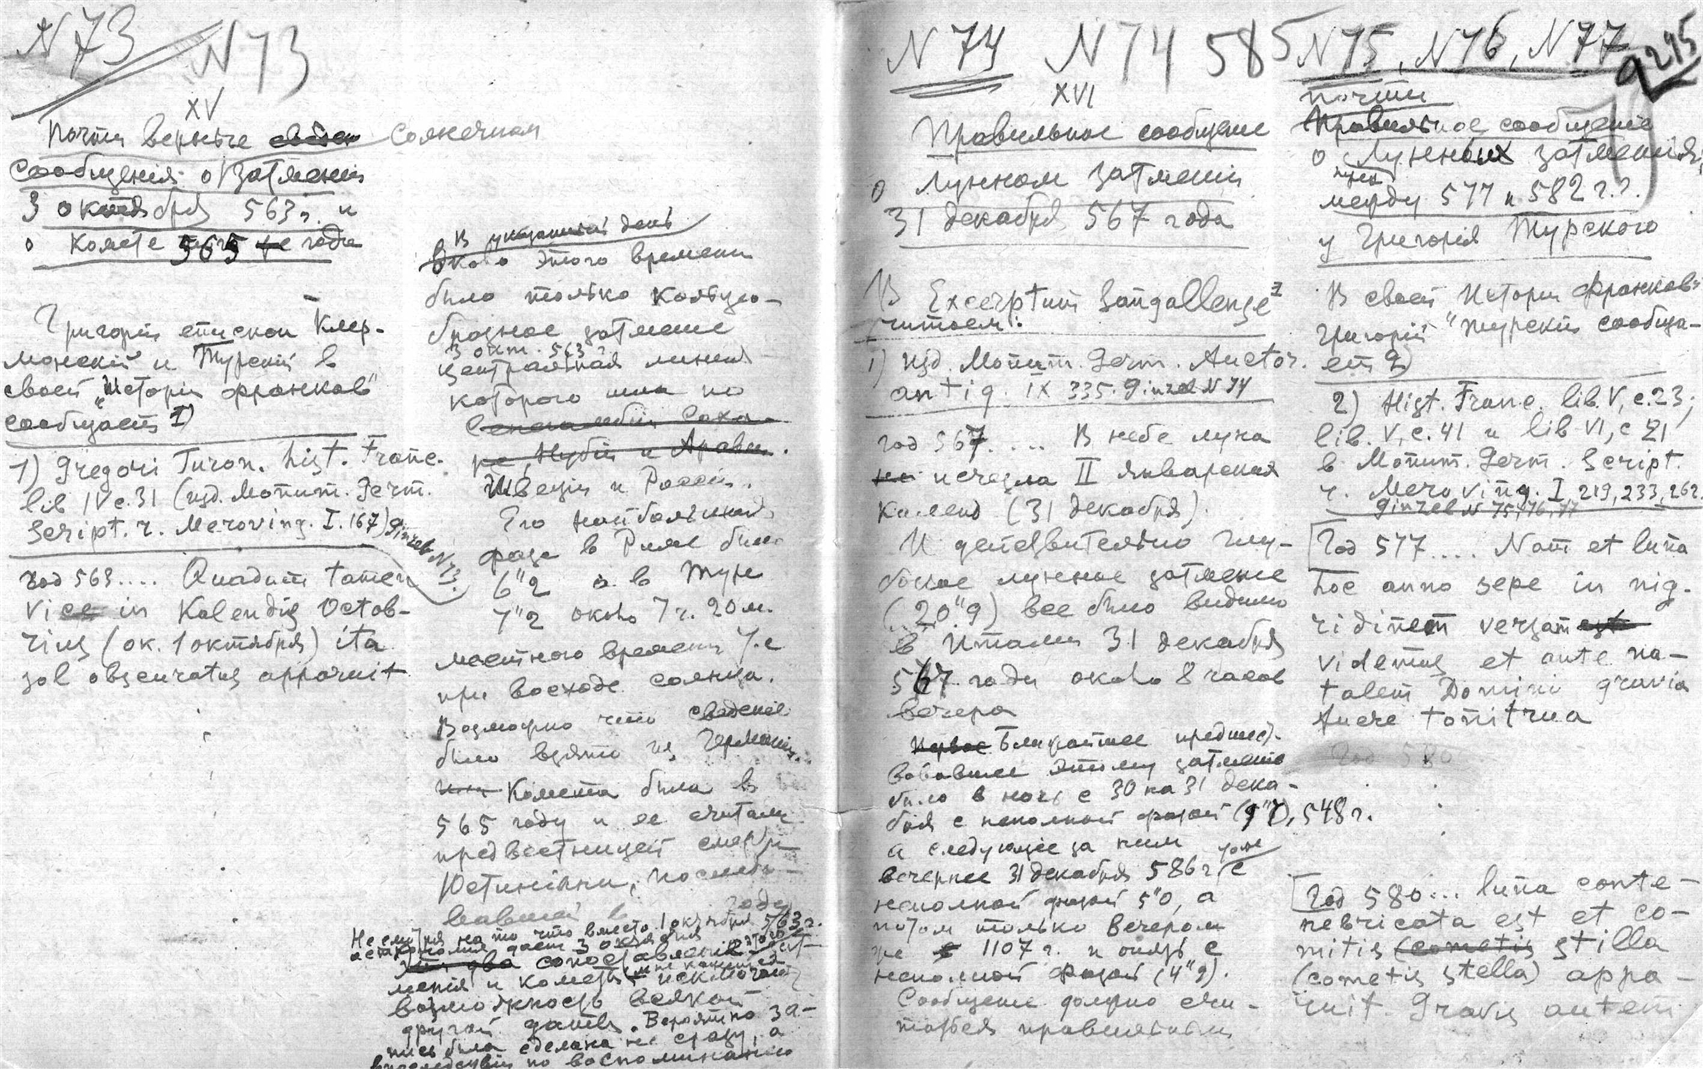 N 73
N 73
XV
Почти верныче солнечная
сообщенія о затменіи
3 октября 563 г. и
о комете 565 года
Григорій епископ Клер-
монскій и Турскій в
своей "Исторіи франков"
сообщает 1)
1) Gregori Turon. hist. Franc.
lib IV c. 31 (изд. Monum. Germ.
Script. r. Meroving. I. 167) Ginzel N 73.
год 563.... Quadam tamen
vice in Kalendis Octob-
rius (ок. 1 октября) ita
sol obscuratus apparuit
В указанный день
Около этого времени
было только кольцо-
бразное затменіе
3 окт. 563 г.
центральная линия
которого шла по
Швеціи и Россіи.
Его наибольшая
фаза в Риме была
6"2 а в Туре
7"2 около 7 ч. 20 м.
местного времени т.е
при восходе солнца.
Возможно что сведеніе
было взято из Германіи.
Комета была в
565 году и ее считали
предвестницей смерти
Юстиніана, последо-
вавшей в году
Несмотря на то что вместо 1 октября 563 г.
астрономия дает 3 октября
сопоставленія этого зат-
менія и кометы исключает
возможность всякой
другой даты. Вероятно за-
пись была сделана не сразу, а
впоследствіи по воспоминанію
N 74 N 74 585
XVI
Правильное сообщеніе
о лунном затменіи
31 декабря 567 года
В Excerptum Sangallense 1
читаем:
1) изд. Monum. Germ. Auctor.
antiq. IX 335. Ginzel N 74
год 567.... В небе луна
исчезла II январская
календ (31 декабря).
И действительно глу-
бокое лунное затменіе
(20"9) все было видимо
в Италіи 31 декабря
567 года около 8 часов
вечера
Ближайшее предшест-
вовавшее этому затменію
было в ночь с 30 на 31 дека-
бря с неполной фазой (9"7), 548 г.
а следующее за ним уже
вечернее 31 декабря 586 г с
неполной фазой 5"0, а
потом только вечером
же 1107 г. и опять с
неполной фазой (4"9)
Сообщеніе должно счи-
таться правильным
N 75, N 76, N 77
9295
почти
Правильное сообщеніе
о лунных затменіях
между 577 и 582 г.?.
у Григорія Турского
В своей Исторіи франков
Григорій "Турскій сообща-
ет 2)
2) Hist. Franc. lib. V, c. 23;
lib. V, c. 41 и lib VI, c 21
в Monum. Germ. Script.
r. Meroving. I, 219, 233, 262.
Ginzel N 75, 76, 77
Год 577.... Nam et luna
hoc anno sepe in nig-
ridinem versam
videmus et ante na-
talem Domini gravia
fuere tonitrua
Год 580
Год 580... luna conte-
nebricata est et co-
mitis (cometis stilla
(cometis stella) appa-
ruit. Gravis autem